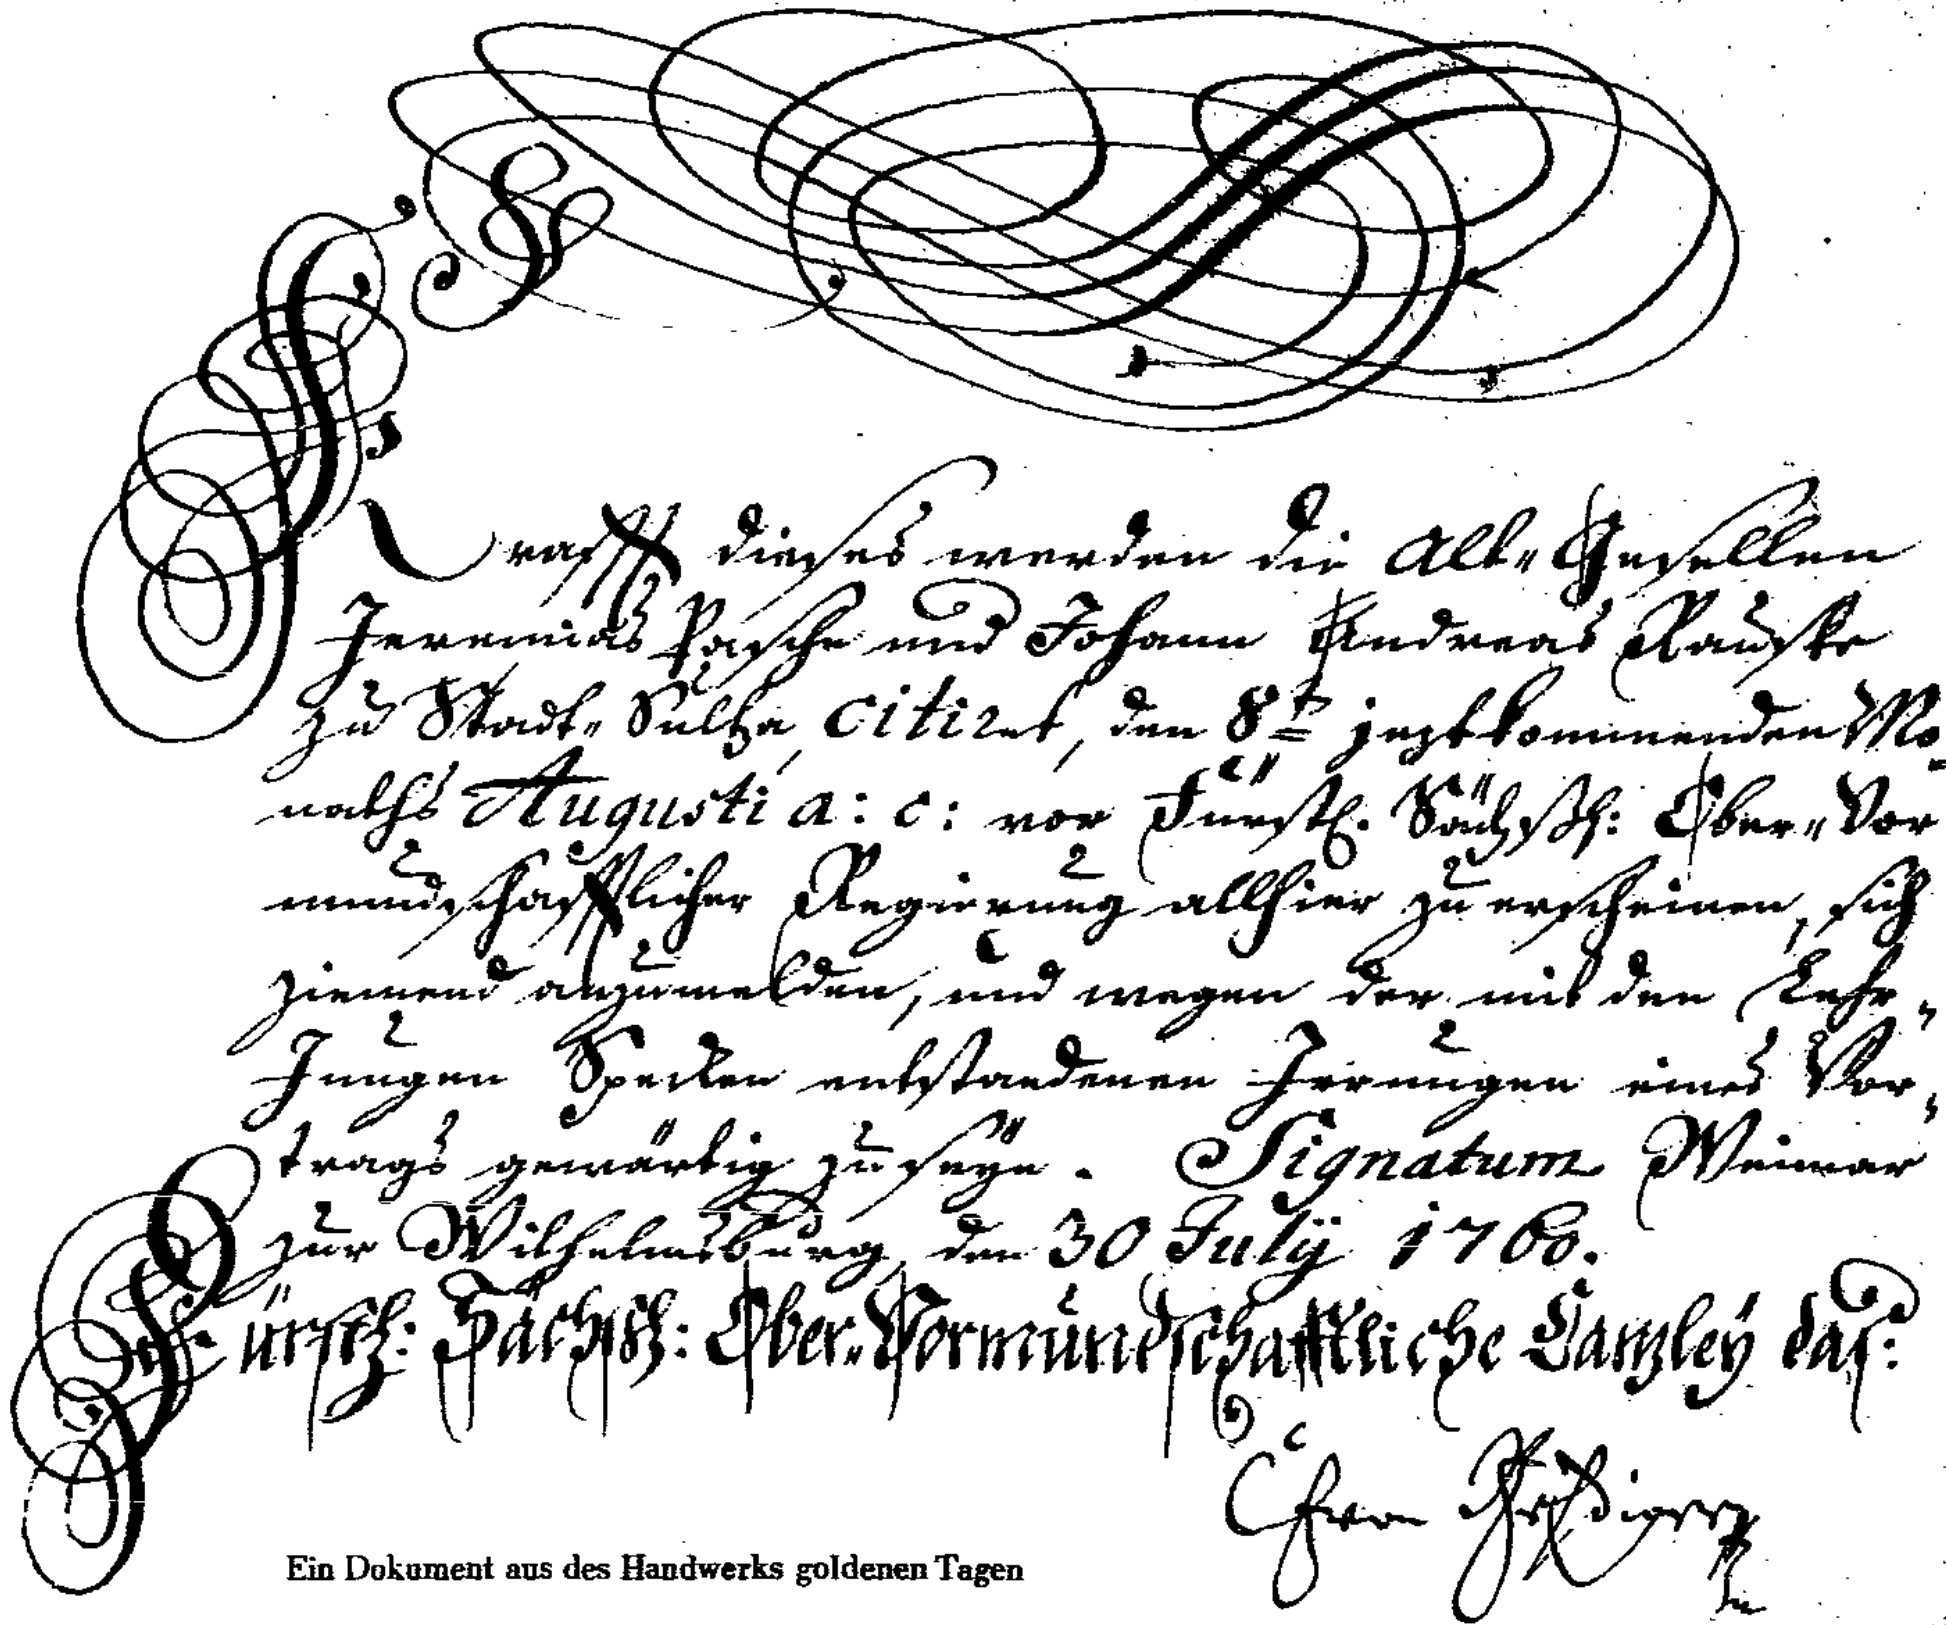 Krafft dieses werden die Alt-Gesellen
Jeremias Pasche und Johann Andreas Rauschke
zu Stadt-Sultza citiret, den 8t jeztkommenden Mo-
naths Augusti a: c: vor Fürstl. Sächßl: Ober-Vor
mundschafftlicher Regierung allhier zu erscheinen, sich
ziemend anzumelden, und wegen der mit den Lehr-
Jungen Specken entstandenen Irrungen eines Vor-
trags gewärtig zu seyn. Signatum Weimar
zur Wilhelmsburg, den 30 July 1760.
Fürstl: Sächßl: Ober-Vormundschafftliche Canzley das:
Ein Dokument aus des Handwerks goldenen Tagen